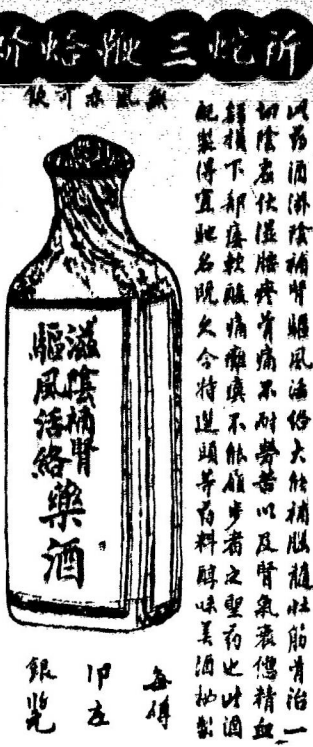 所蛇三鞭蛤
無風亦可飲
此葯酒滋陰補腎驅風活絡大能補腦髓壯筋骨治一
切陰衰伏湿腰疼骨痛不耐勞苦以及腎氣衰憊精血
虧損下部痿軟酸痛癱瘓不能履步者之聖葯也此酒
配製得宜馳名既久今特選頭等葯料醇味美酒秘製
滋陰補腎
驅風活絡
藥酒
每樽
印左
銀